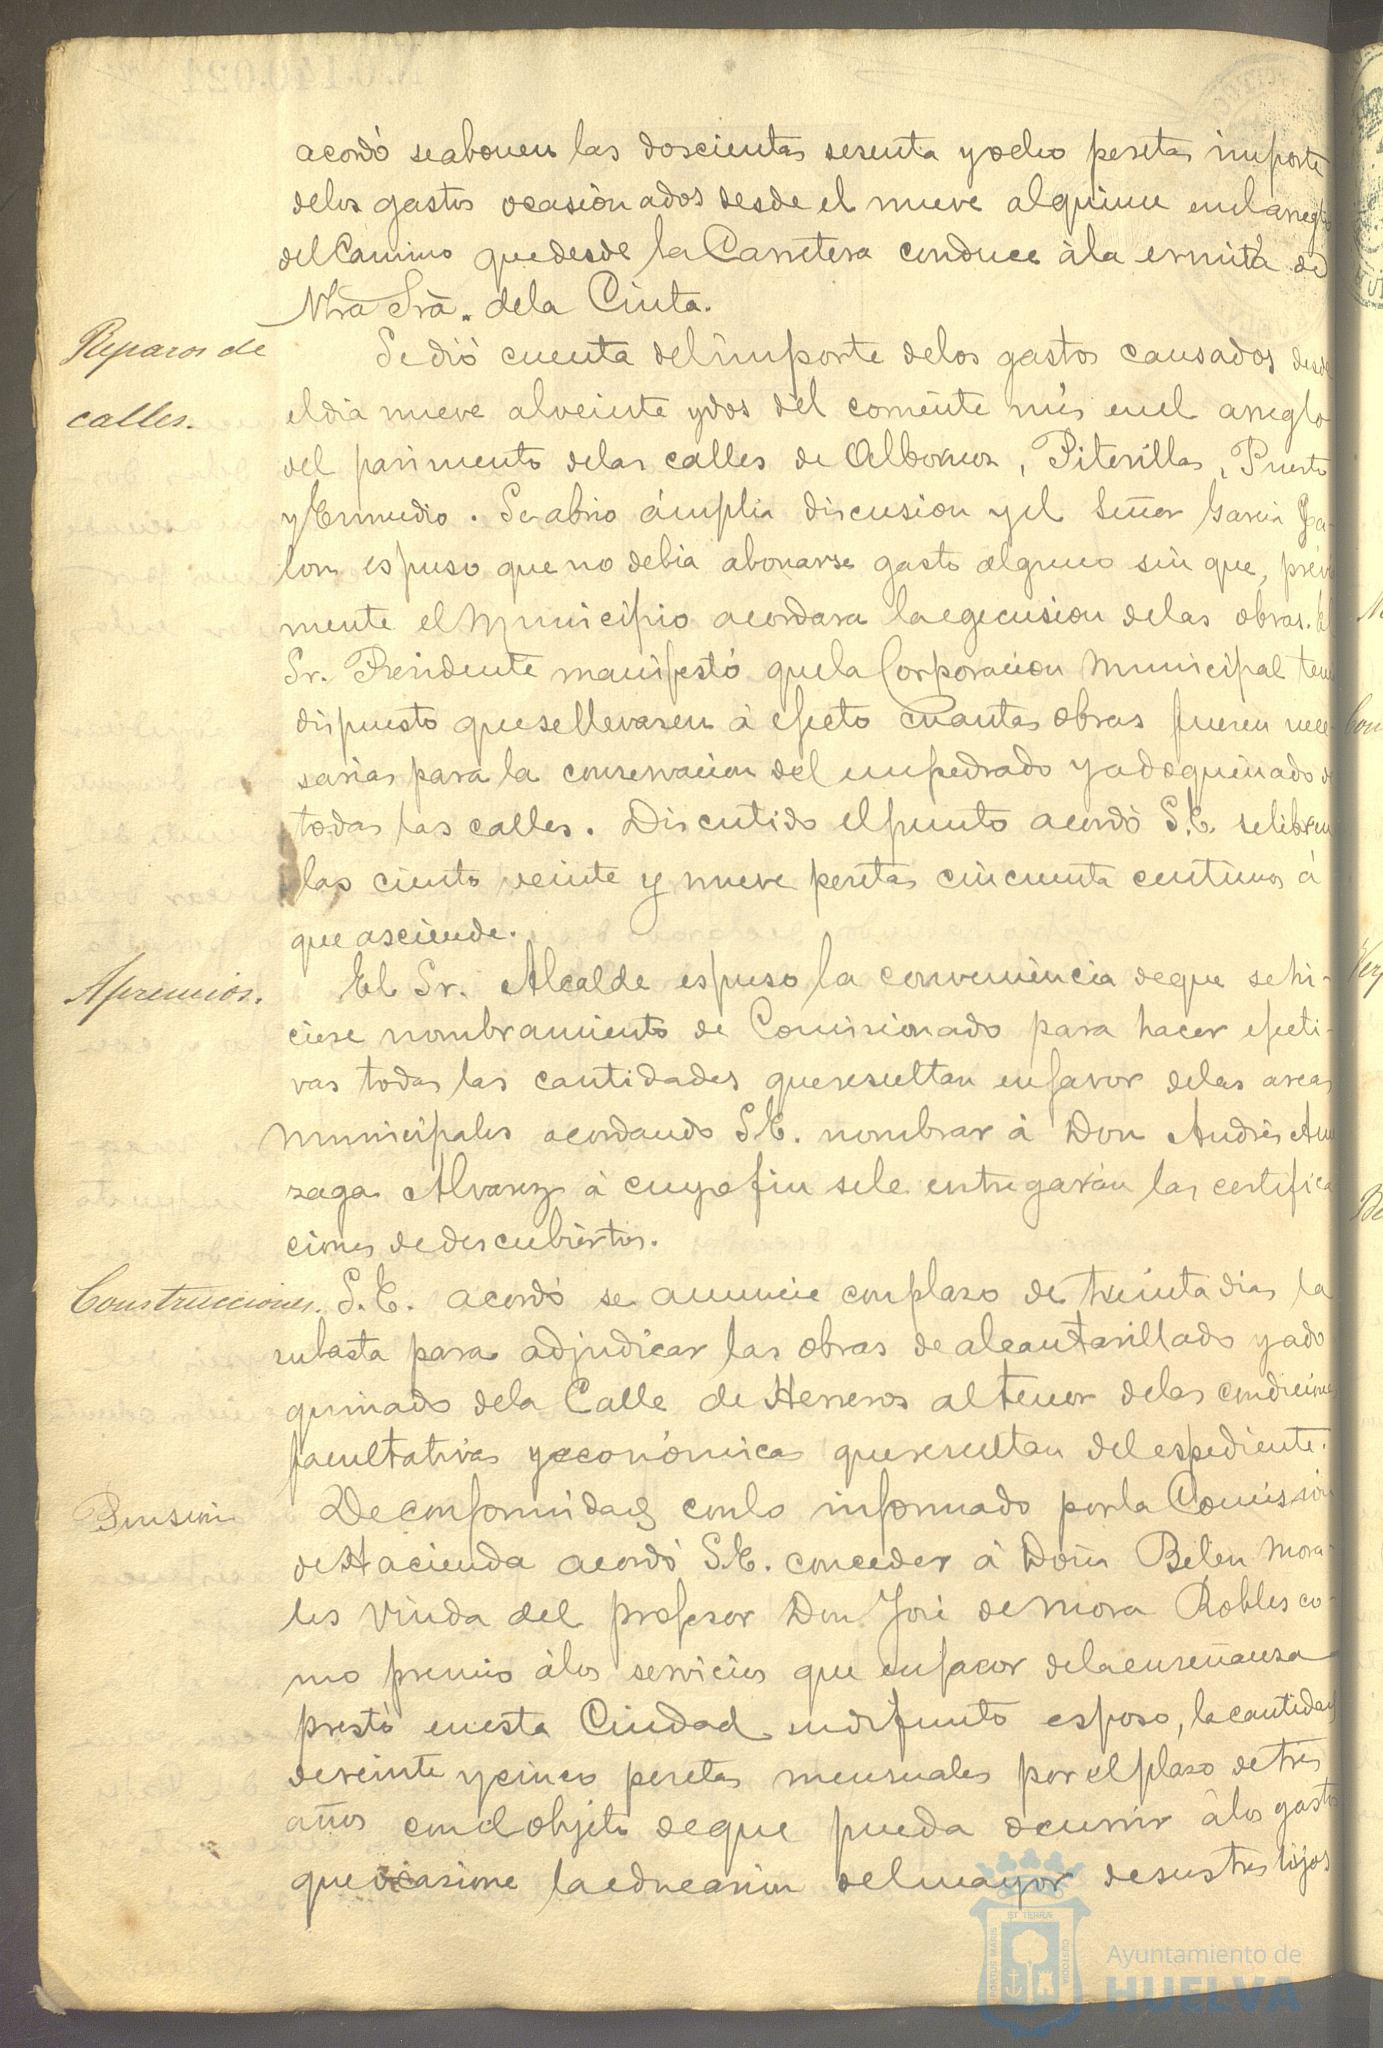 acordó se abonen las doscientas sesenta y ocho pesetas importe
de los gastos ocasionados desde el nueve al quince en el arreglo
del Camino que desde la Carretera conduce à la ermita de
Ntra Sra. de la Cinta.
Reparos de
calles.
Se dió cuenta del importe de los gastos causados desde
el dia nueve al veinte y dos del corriente mes en el arreglo
del pavimento de las calles de Albornoz, Piterilla, Puerto
y Enmedio. Se abrio ámplia discusion y el Señor Garcia Ja-
lon espuso que no debia abonarse gasto alguno sin que, previa
mente el Municipio acordara la egecusion de las obras. El
Sr. Presidente manifestó que la Corporacion Municipal tenia
dispuesto que se llevasen à efecto cuantas obras fueren nece-
sarias para la conservacion del empedrado y adoquinado de
todas las calles. Discutido el punto acordó S.E. se libren
las ciento veinte y nueve pesetas cincuenta centimos á
que asciende.
Apremios.
El Sr. Alcalde espuso la conveniencia de que se hi-
ciese nombramiento de Comisionado para hacer efecti-
vas todas las cantidades que resultan en favor de las arcas
municipales acordando S.E. nombrar à Don Andrés
zaga Alvarez à cuyo fin se le entregarán las certifica
ciones de descubiertos.
Construcciones. S.E. acordó se anuncie con plazo de treinta dias la
subasta para adjudicar las obras de alcantarillado y ado
quinado de la Calle de Herreros al tenor de las condiciones
facultativas y económicas que resultan del espediente.
Pension
De conformidad con lo informado por la Comission
de Hacienda acordó S.E. conceder à Doña Belen Mora-
les viuda del profesor Don José de Mora Robles co-
mo premio à los servicios que en favor de la enseñansa
prestó en esta Ciudad su difunto esposo, la cantidad
de veinte y cinco pesetas mensuales por el plazo de tres
años con el objeto de que pueda ocurrir à los gastos
que ocasione la educacion del mayor de sus tres hijos
Ayuntamiento de
HUELVA